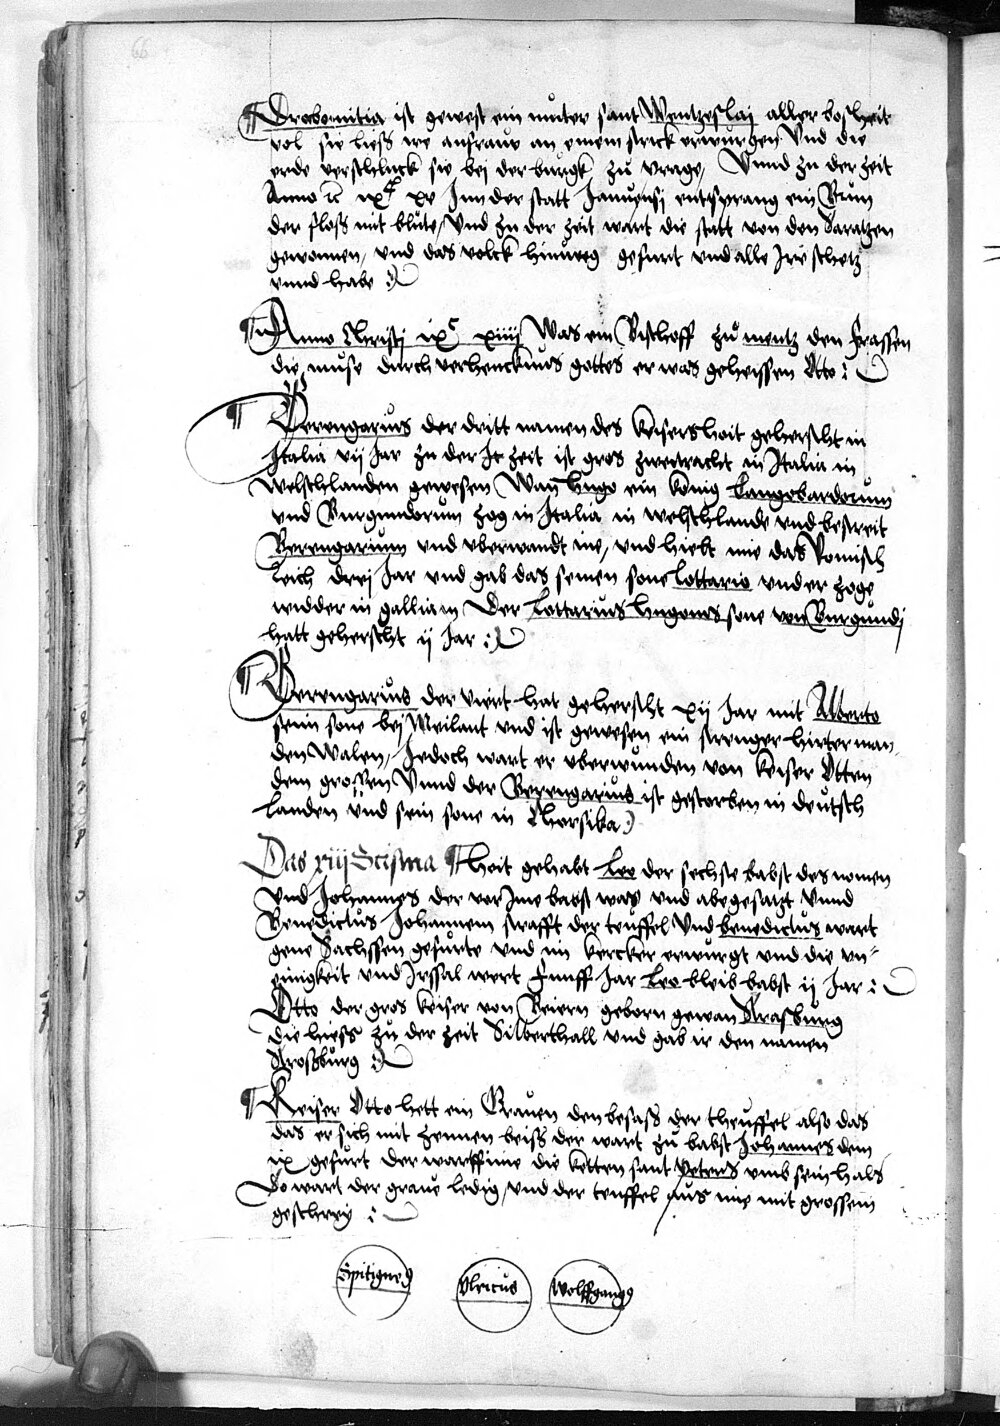 66
¶ Drabomitia ist gewest ein muter sant Wentzeslaj aller bosheit
vol sie liess ire anfraue an einem strick erwurgen Vnd die
erde verschluck sie bei der burgk zu Prage, Vnnd zu der zeit
Anno ixc xv Jnn der statt Januensj entsprang ein Brun
der floss mit blute, Vnd zu der zeit wart die statt von den Saratzen
gewonnen, vnd das volck hinweg gefurt vnd alle Jre schetz
vnnd habe :
¶ Anno Christj ixc xiiij Was ein Bischoff zu mentz den frassen
die muse durch verhencknus gottes er was geheissen Otto :
¶ Berengarius der dritt namen des keisers hait geherscht in
Jtalia vij Jar zu der zeit ist gros zwetracht in Jtalia in
welschlanden gewesen Wan hugo ein konig Langobardorum
vnd Burgundorum zog in Jtalia in welschlande vnd bestreit
Berengarium vnd vberwandt ine, vnd hielt inne das Romisch
Reich drej Jar vnd gab das seinen sone Lottario vnd er zoge
widder in galliam Der Lottarius hugones sone von Burgundj
hatt geherscht ij Jar :
¶ Berengarius der viert hat gehersscht xij Jar mit Alberto
seim sone bej Meilant vnd ist gewesen ein strenger hirter man
den Walen, Jedoch wart er vberwunden von keiser Otten
dem grossen Vnnd der Berengarius ist gestorben in deutsch
Landen vnd sein sone in Chorsika
Das xiij Scisma ¶ Heit gehabt Leo der sechste babst des nomen
vnd Johannes der vor Jme babst was vnd abegesatzt vnnd
Benedictus Johannem strafft der teuffel Vnd benedictus wart
gene Sachssen gefurte vnd im kercker erwurgt vnd die vn-
einigkeit vnd Jrssal wert funff Jar Leo bleib babst ij Jar :
Otto der gros keiser von Beiern geborn gewan Strasburg
die hiess zu der zeit Silberthall vnd gab ir den namen
Strossburg :
¶ Keiser Otto hett ein Grauen den besass der theuffel also das
das er sich mit zennen beiss der wart zu babst Johannes dem
ix gefurt der warff ime die ketten sant Peters vmb sein hals
Do wart der graue ledig, vnd der teuffel fur vs ime mit grossem
geschrey :
Spitigneus
Vlricus
Wolffgangus